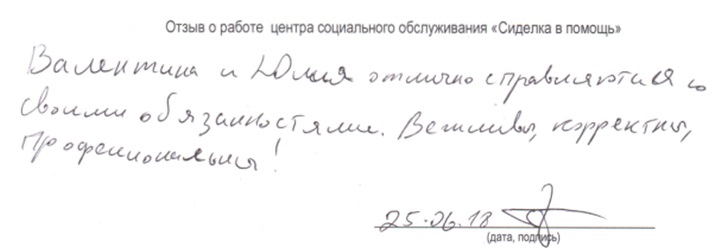 Отзыв о работе центра социального обслуживания «Сиделка в помощь»
Валентина и Юлия отлично справляются со
своими обязанностями. Вежливы, корректны,
профессиональны!
25.06.18
(дата, подпись)